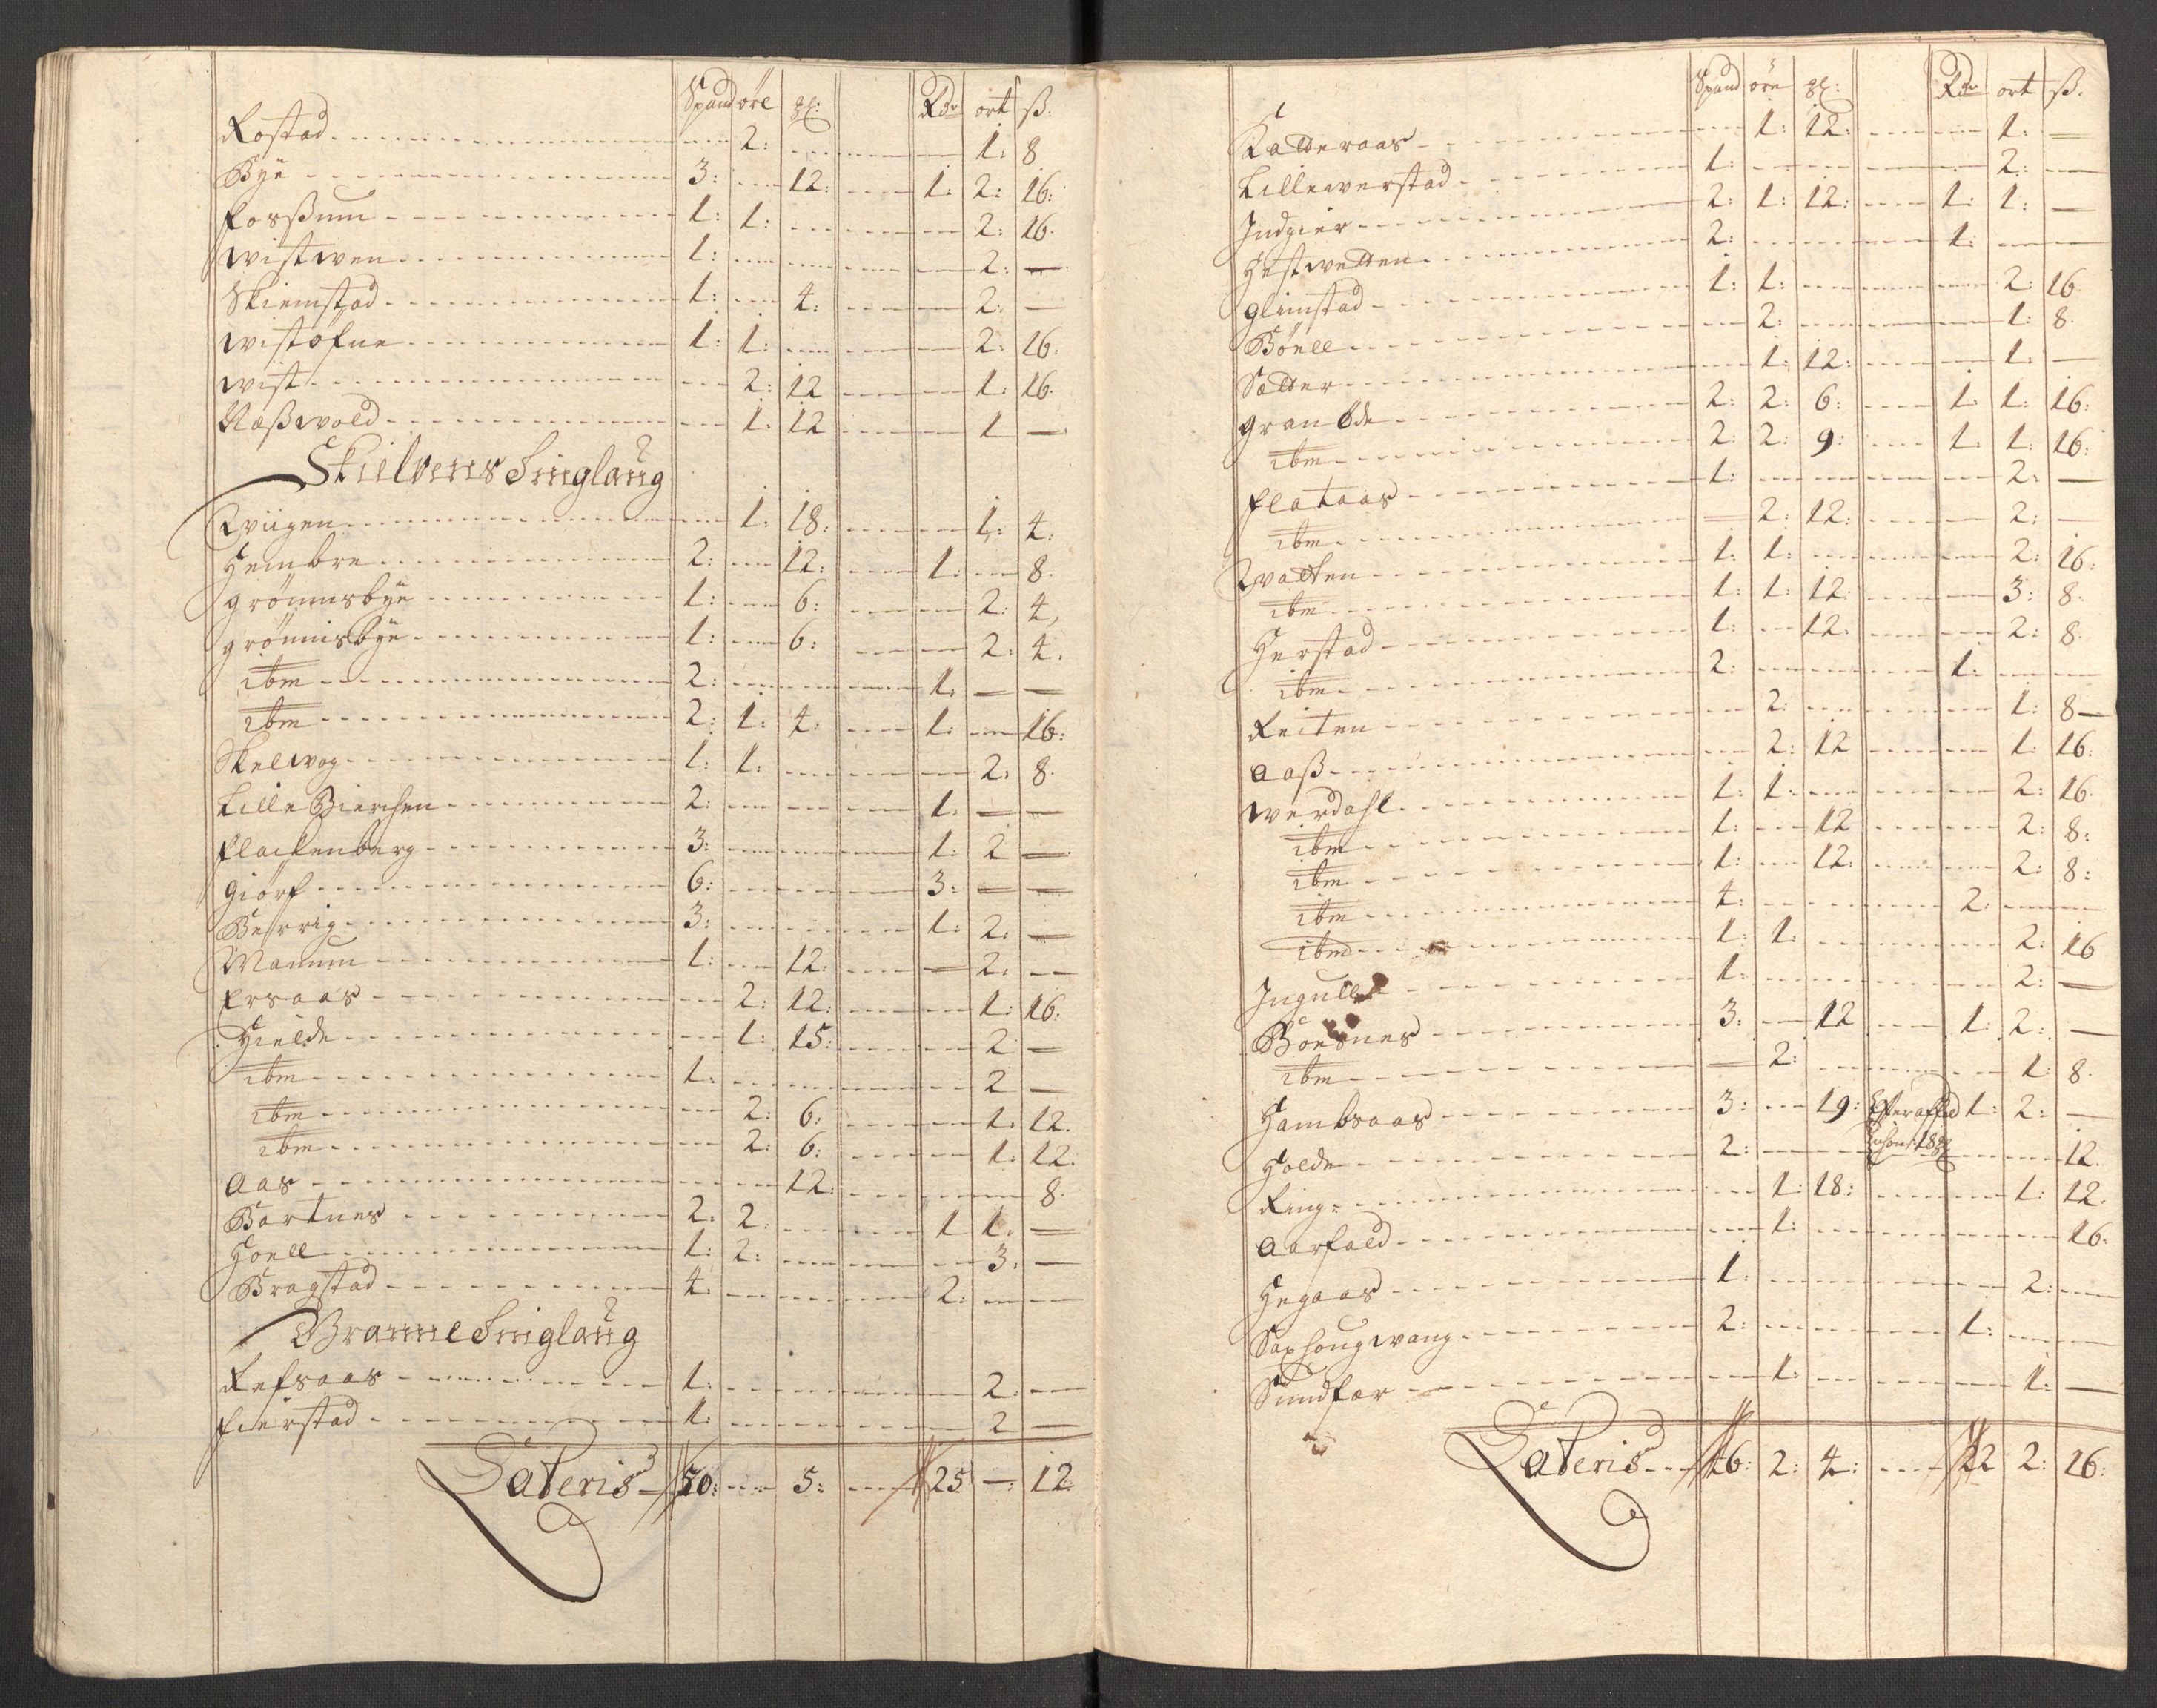 Spand öre gl: Rdr ort ß:
Rostad 2: 1: 8
Bye 3: 12: 1: 2: 16:
Fossum 1: 1: 2: 16.
Wistwen 1: 2: —
Skiemstad 1: 4: 2: —
Wistøfne 1: 1: 2: 16.
Wist 2: 12 1: 16.
Næßwold 1: 12 1 —
Skielvens Tinglaug
Qviigen 1: 18: 1: 4:
Hembre 2: 12: 1: 8.
Grönnisbye 1: 6: 2: 4,
Grönnisbye 1: 6: 2: 4.
ibm 2: 1: — —
ibm 2: 1: 4: 1: 16:
Skelwog 1: 1: 2: 8.
Lille Bierchen 2: 1: — —
Flackenberg 3: 1: 2 —
Giörf 6: 3: — —
Berrig 3: 1: 2: —
Manum 1: 12: — 2: —
Ersaas 2: 12: 1: 16:
Hielde 1: 15: 2 —
ibm 1: 2 —
ibm 2: 6: 1: 12.
ibm 2: 6: 1: 12.
Aas 12: 8.
Bartnes 2: 2. 1 1. —
Hoell 1: 2: 3. —
Bragstad 4: 2: — —
Gramme Tinglaug
Refsaas 1: 2: —
Fierstad 1: 2 —
Lateris 50: 5: 25 —: 12
Spand öre gl: Rdr ort ß.
Kalderaas 1: 12: 1: —
Lillewerstad 1: 2: —
Indgier 2: 1: 12: 1: 1: —
Hestwedten 2: 1: —
Glimstad 1: 1: 2: 16
Böell 2: 1: 8.
Sætter 1: 12: 1: —
Gran Öde 2: 2: 6: 1: 1: 16:
ibm 2: 2: 9: 1: 1: 16:
Flataas 1: 2: —
ibm — 2: 12: 2: —
Qvatten 1: 1: 2: 16:
ibm 1: 1: 12: 3: 8.
Herstad 1: 12: 2: 8.
ibm 2: 1: —
Reiten 2: 1: 8 —
Aaß 2: 12 1: 16:
Werdahl 1: 1: 2: 16.
ibm 1: 12 2: 8:
ibm 1: 12: 2: 8:
ibm 4: 2. —
ibm 1: 1: 2: 16
Ingull 1: 2: —
Boesnes 3: 12 1: 2: —
ibm — 2: 1: 8.
Hambraas 3: 19: 1: 2: —
Holde 2: 12.
Ring 1: 18: 1: 12.
Aarfald 1: 16.
Hegaas 1: 2: —
Saxhougwang 2: 1: —
Sundfær 1: 1: —
Lateris 46: 2: 4: 22 2: 16: